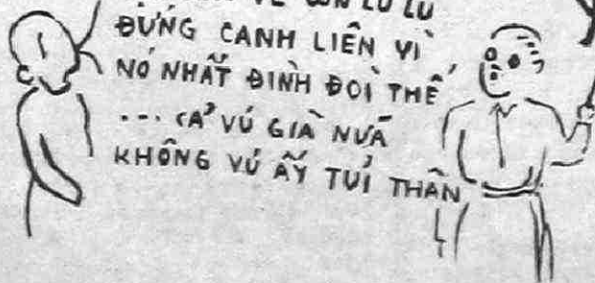 LU LU
ĐỨNG CANH LIÊN VÌ
NÓ NHẤT ĐINH ĐÒI THẾ
... CẢ VÚ GIÀ NỮA
KHÔNG VÚ ẤY TỦI THÂN